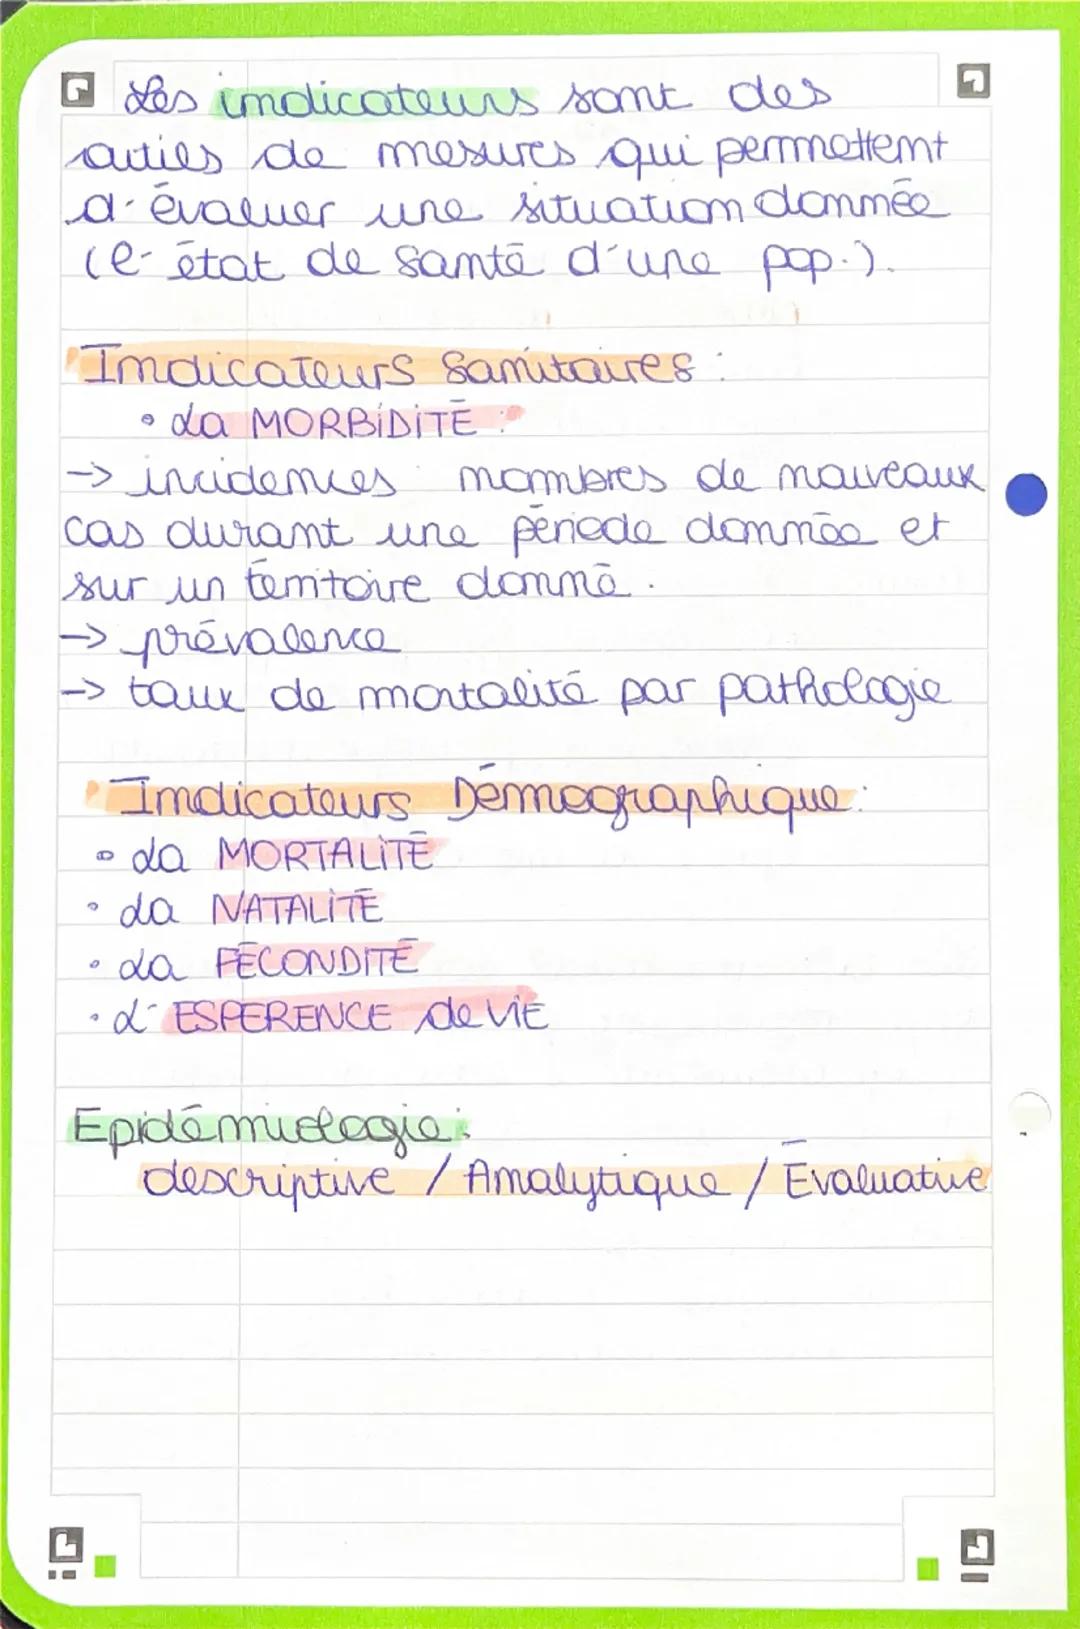 Les indicateurs sont des
outils de mesures qui permettent
d'évaluer une situation donnée
(l'état de santé d'une pop.).
Indicateurs Sanitaires :
• La MORBIDITÉ :
-> incidences nombres de nouveaux
cas durant une période donnée et
sur un territoire donné.
-> prévalence
-> taux de mortalité par pathologie
Indicateurs Démographique :
• La MORTALITÉ
• La NATALITÉ
• La FÉCONDITÉ
• L'ESPERENCE de ViE
Epidémiologie :
descriptive / Analytique / Évaluative